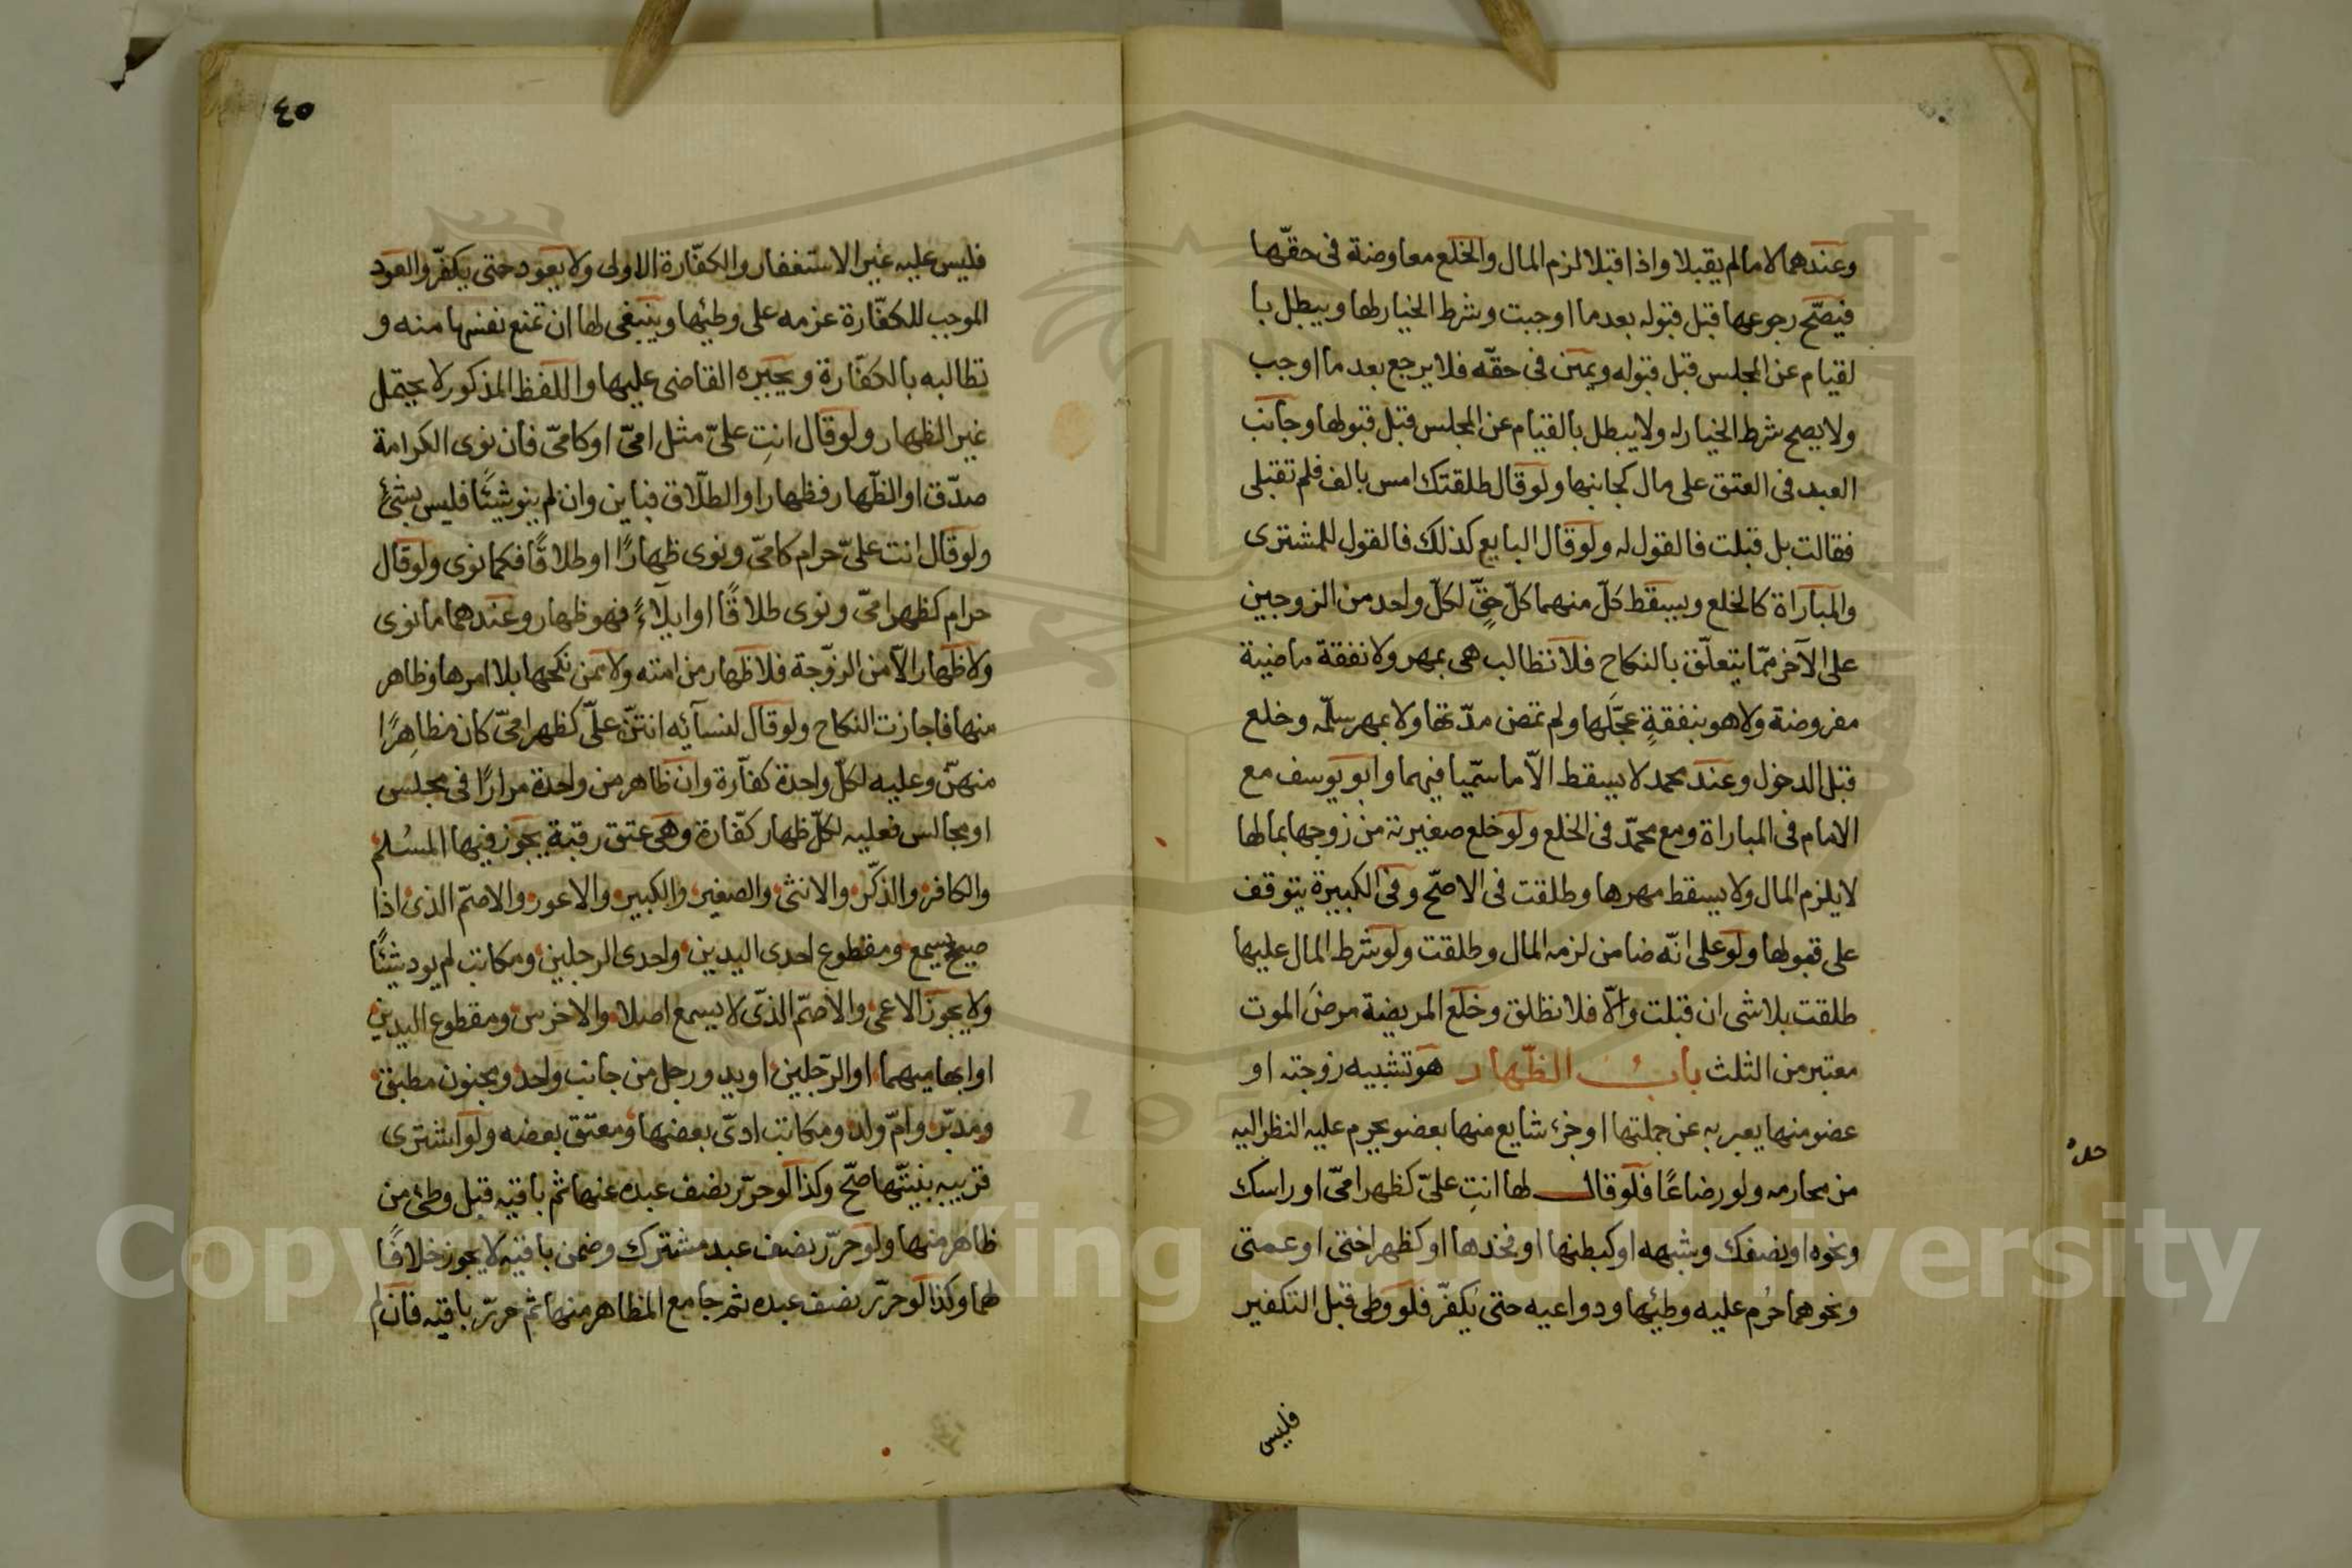 وعندهما لا مالم يقبلا واذا قبلا لزم المال والخلع معاوضة فى حقّها
فيصّح رجوعها قبل قبوله بعد ما اوجبت وشرط الخيار لها ويبطل با
لقيام عن المجلس قبل قبوله ويمين فى حقّه فلا يرجع بعد ما اوجب
ولا يصح شرط الخيار له ولا يبطل بالقيام عن المجلس قبل قبولها وجانب
العبد فى العتق على مال كجانبها ولو قال طلقتك امس بالف فلم تقبلى
فقالت بل قبلت فالقول له ولو قال البايع كذلك فالقول للمشترى
والمباراة كالخلع ويسقط كلّ منهما كلّ حقٍّ لكلّ واحد من الزوجين
على الآخر ممّا يتعلّق بالنكاح فلا تطالب هى بمهر ولا نفقة ماضية
مفروضة ولا هو بنفقةٍ عجّلها ولم تمض مدّتها ولا بمهر سلّمه وخلع
قبل الدخول وعند محمد لا يسقط الاّ ما سمّيا فيهما وابو يوسف مع
الامام فى المباراة ومع محمّد فى الخلع ولو خلع صغيرته من زوجها بمالها
لا يلزم المال ولا يسقط مهرها وطلقت فى الاصّح وفى الكبيرة يتوقف
على قبولها ولو على انّه ضامن لزمه المال وطلقت ولو شرط المال عليها
طلقت بلا شى ان قبلت والّا فلا تطلق وخلع المريضة مرض الموت
معتبر من الثلث باب الظّهار هو تشبيه زوجته او
عضو منها يعبر به عن جملتها او جزء شايع منها بعضو يحرم عليه النظر اليه
من محارمه ولو رضاعًا فلو قال لها انتِ علىّ كظهر امىّ او راسك
ونحوه او نصفك وشبهه او كبطنها او فخذها او كظهر اختى او عمتى
ونحوهما حرُم عليه وطيئها ودواعيه حتى يكفّر فلو وطى قبل التكفير
فليس
٤٥
فليس عليه غير الاستغفار والكفّارة الاولى ولا يعود حتى يكفّر والعود
الموجب للكفّارة عزمه على وطئها وينبغى لها ان تمنع نفسها منه و
تطالبه بالكفّارة ويجبره القاضى عليها واللفظ المذكور لا يحتمل
غير الظهار ولو قال انتِ علىّ مثل امىّ او كامىّ فان نوى الكرامة
صدّق او الظّهار فظهار او الطلّاق فباين وان لم ينو شيئًا فليس بشئٍ
ولو قال انت علىّ حرام كامىّ ونوى ظهارًا او طلاقًا فكما نوى ولو قال
حرام كظهر امىّ ونوى طلاقًا او ايلاءً فهو ظهار وعندهما ما نوى
ولا ظهار الاّ من الزوّجة فلا ظهار من امته ولا ممن نكحها بلا امرها وظاهر
منها فاجازت النكاح ولو قال لنسآئه انتنّ علىّ كظهر امىّ كان مظاهِرًا
منهنّ وعليه لكلّ واحدة كفاّرة وان ظاهر من واحدة مرارًا فى مجلس
او مجالس فعليه لكلّ ظهار كفّارة وهى عتق رقبة يجوز فيها المسُلم
والكافر والذكّر والانثى والصغير والكبير والاعور والاصمّ الذى اذا
صيح يسمع ومقطوع احدى اليدين واحدى الرجلين ومكاتب لم يود شيئًا
ولا يجوز الاعمى والاصمّ الذّى لا يسمع اصلا والاخرس ومقطوع اليدين
او ابهاميهما او الرّجلين او يد ورجل من جانب واحد ومجنون مطبق
ومدبّر وامّ ولد ومكاتب ادىّ بعضها ومعتق بعضه ولو اشترى
قريبه بنيتّها صّح وكذا لو حرّر نصف عبده عنها ثم باقيه قبل وطئ من
ظاهر منها ولو حرّر نصف عبد مشترك وضمن باقيه لا يجوز خلافًا
لهما وكذا لو حرّر نصف عبده ثم جامع المظاهر منها ثم حررّ باقيه فان لم
Copyright © King Saud University
1957